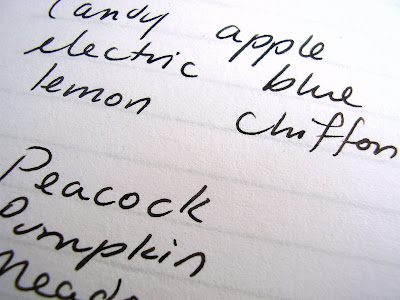 Candy apple
electric blue
lemon chiffon
Peacock
Pumpkin